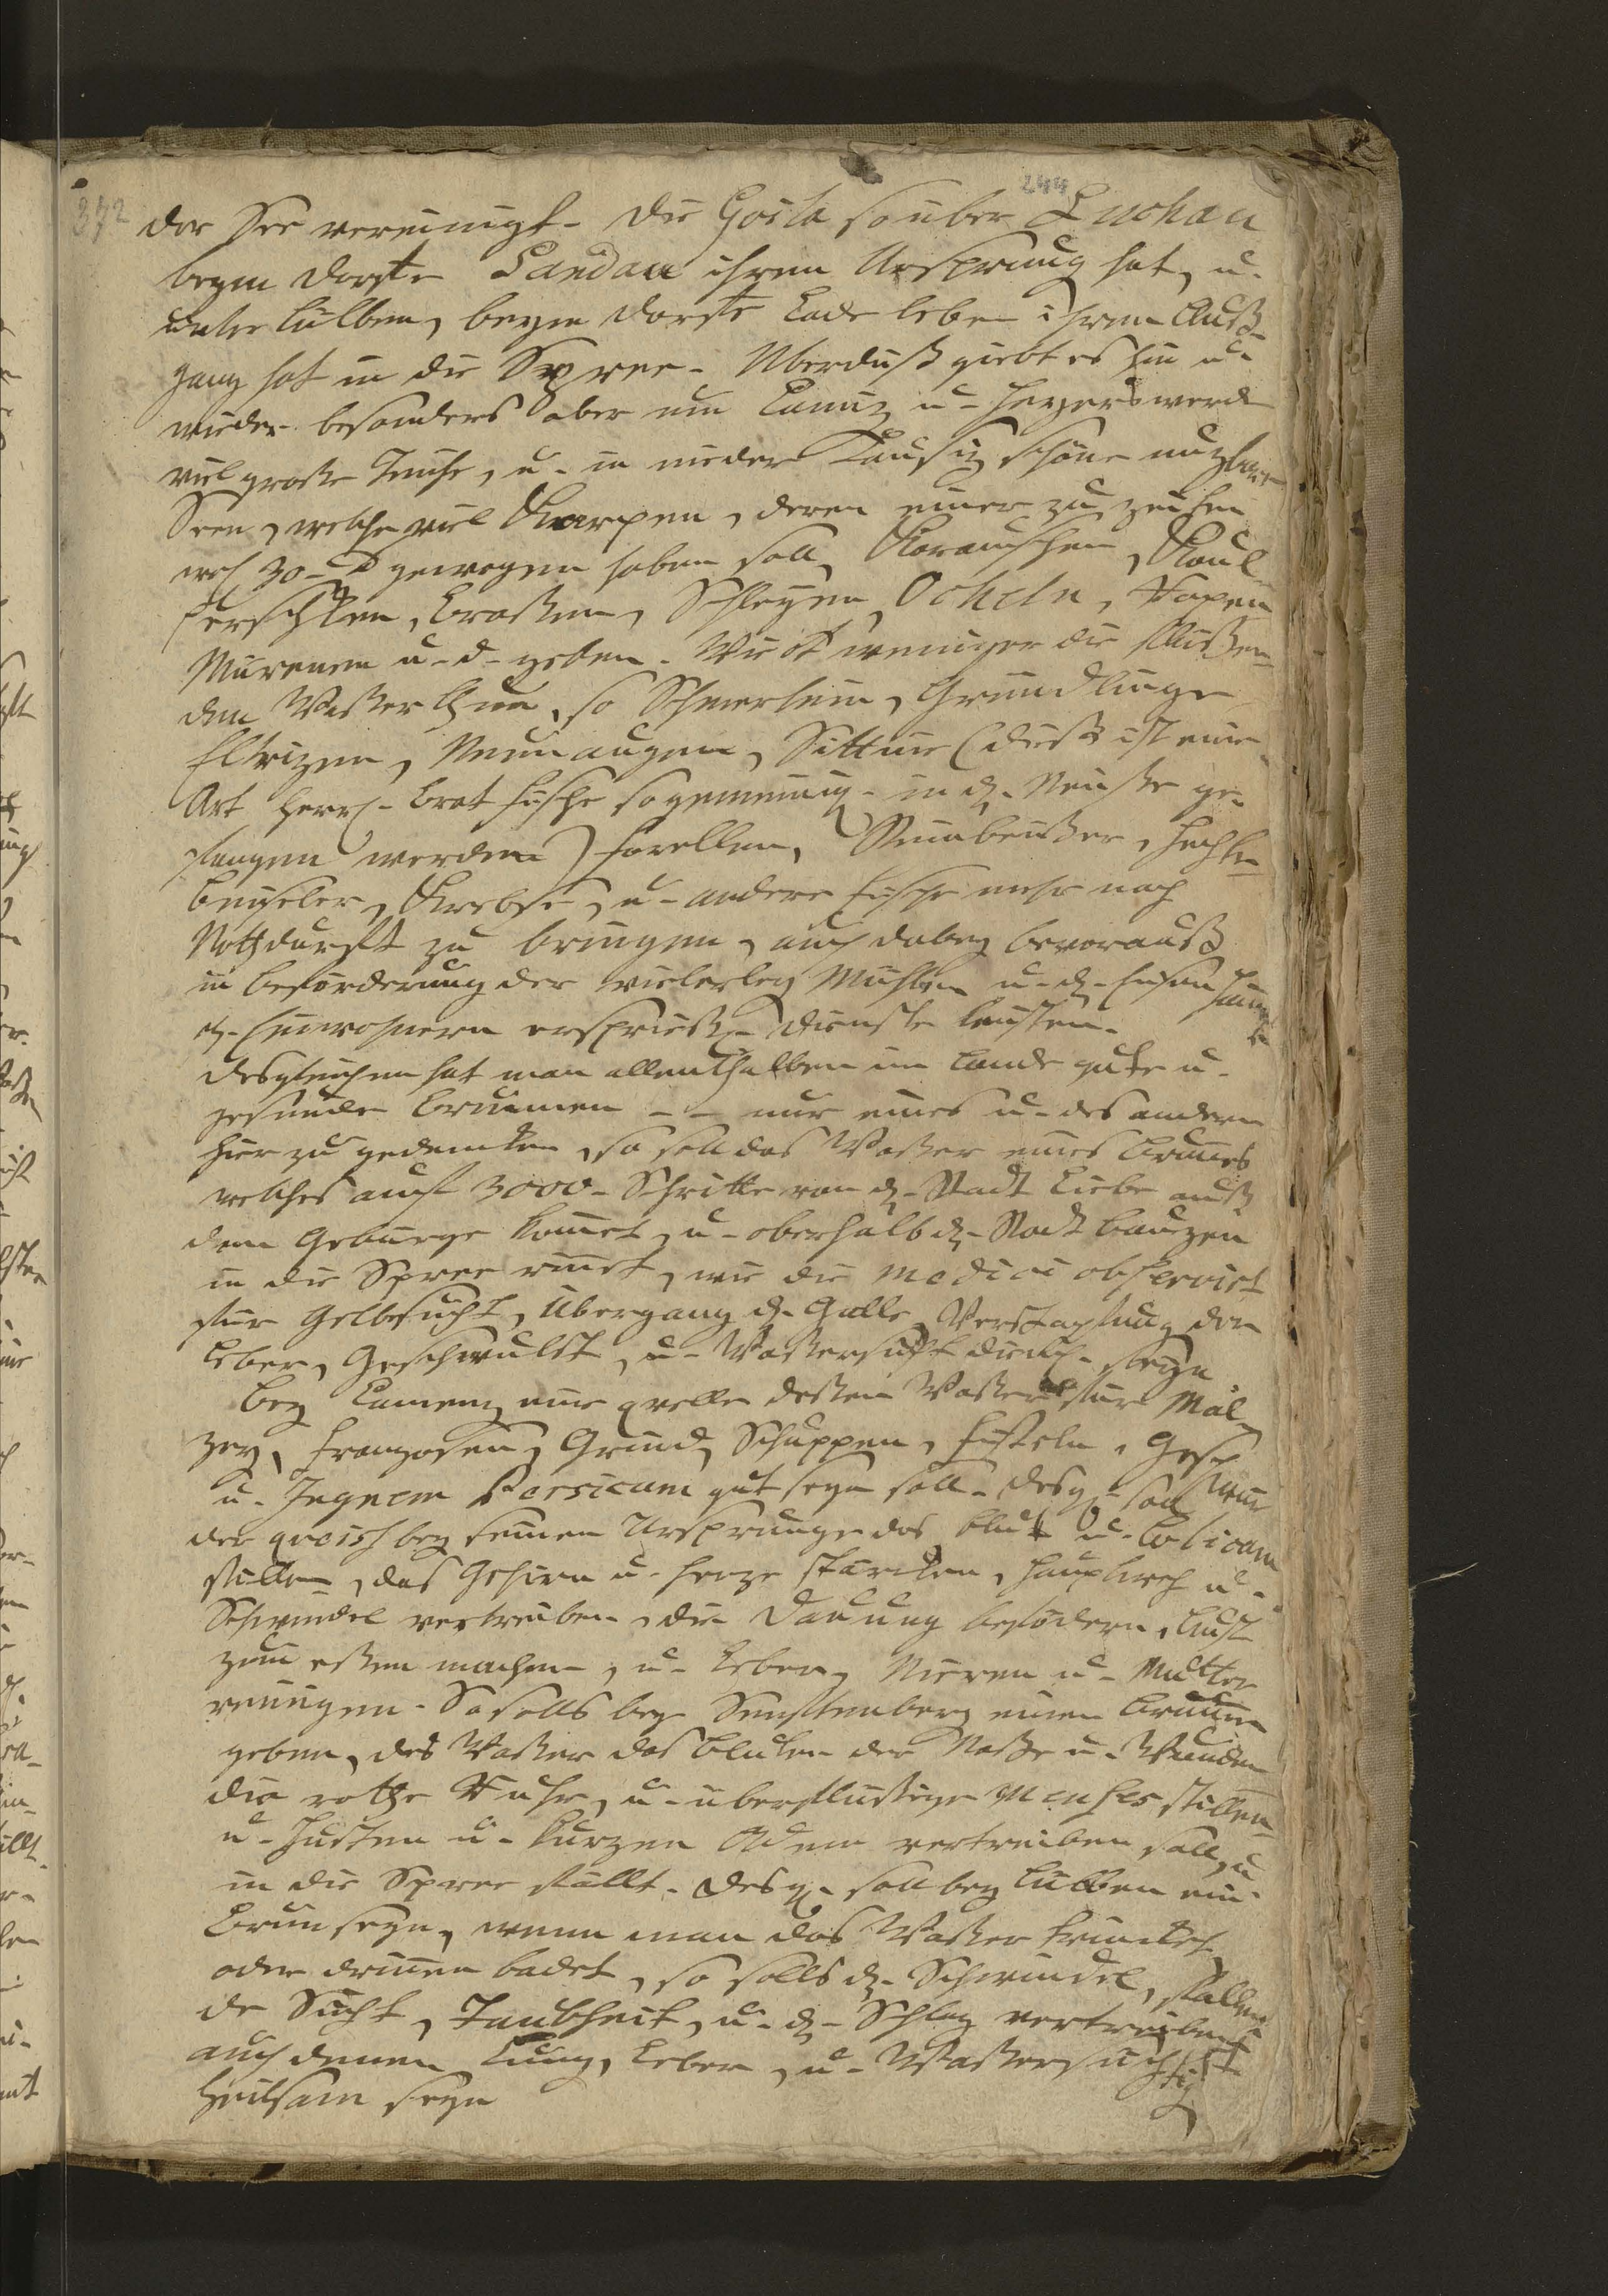 244
372
der See vereinigt. Die Goila so über Luckau
beym Dorffe Sandau ihren Ursprung hat, u.
unter Lübben, beym Dorffe Lade leben ihren Auß
gang hat in die Spree. Uberdieß giebt es hin u.
wieder besonders aber um Camiz u. Heyerswerde
viel große Teiche, u. in nieder Lausiz schöne nuzbare
Seen, welche viel Karpen, deren einer zu zeiten
30 gewogen haben soll, Karauschen, Kaul
persken, Braßen, Schleyen, Ocheln, Rapen
Murenen u. d. geben. Nicht weniger die flüßen
den Waßer thun, so Schmerlein, Gründlinge
Elrizen, Neunaugen, Sittine (dieß ist eine
Art Herrn brat fische so gemeinig. in d. Neiße ge
fangen werden) forellen, Steinbeißer, Hechte
Beißeler, Krebse, u. andere fische mehr nach
Nothdurfft zu bringen, auch dabey bevorauß
in beförderung der vielerley Mühlen u. d. Eisen Häm
d. Einwohnern ersprießl. Dienste leisten.
desgleichen hat man allenthalben im Lande gute u.
gesunde Brunnen -- nur eines u. des andern
hier zu gedencken, so soll das Waßer eines Brunes
welches auf 3000. Schritte von d. Stadt Liebe auß
dem Gebürge komet, u. oberhalb d. Stadt Bauzen
in die Spree rinet, wie die Medici observirt
für Gelbsucht, Übergang d. Galle, Verstopfung der
Leber, Geschwulst, u. Waßersucht dienl. seyn
Bey Camenz eine qvelle deßen Waßer für Mäl
zey, Franzosen, Grind, Schuppen, Fisteln, Gesch
u. Ignem Persicum gut seyn soll. Desgl. soll
der qveis bey seinen Ursprunge das Blut u. Colicam
stillen, das Gehirn u. Herze stärcken, Hauptweh u.
Schwindel vertreiben, die Dauung befodern, Lust
zum eßen machen, u. Leber, Nieren u. Mutter
reinigen. So solls bey Senftenberg einen Brunnen
geben, des Waßer das Bluten der Naße u. Wunden
die rothe Ruhr, u. überflüßige Menses stillen
u. Husten u. kurzen Odem vertreiben soll, u
in die Spree fällt. Desgl. soll bey Lübben ein
Brun seyn, wenn man das Waßer trincket
oder drinnen badet, so solls d. Schwindel, fallen
de Sucht, Taubheit, u. d. Schlag vertreiben
auch denen Lung, Leber, u. Waßersüchtig
heilsam seyn